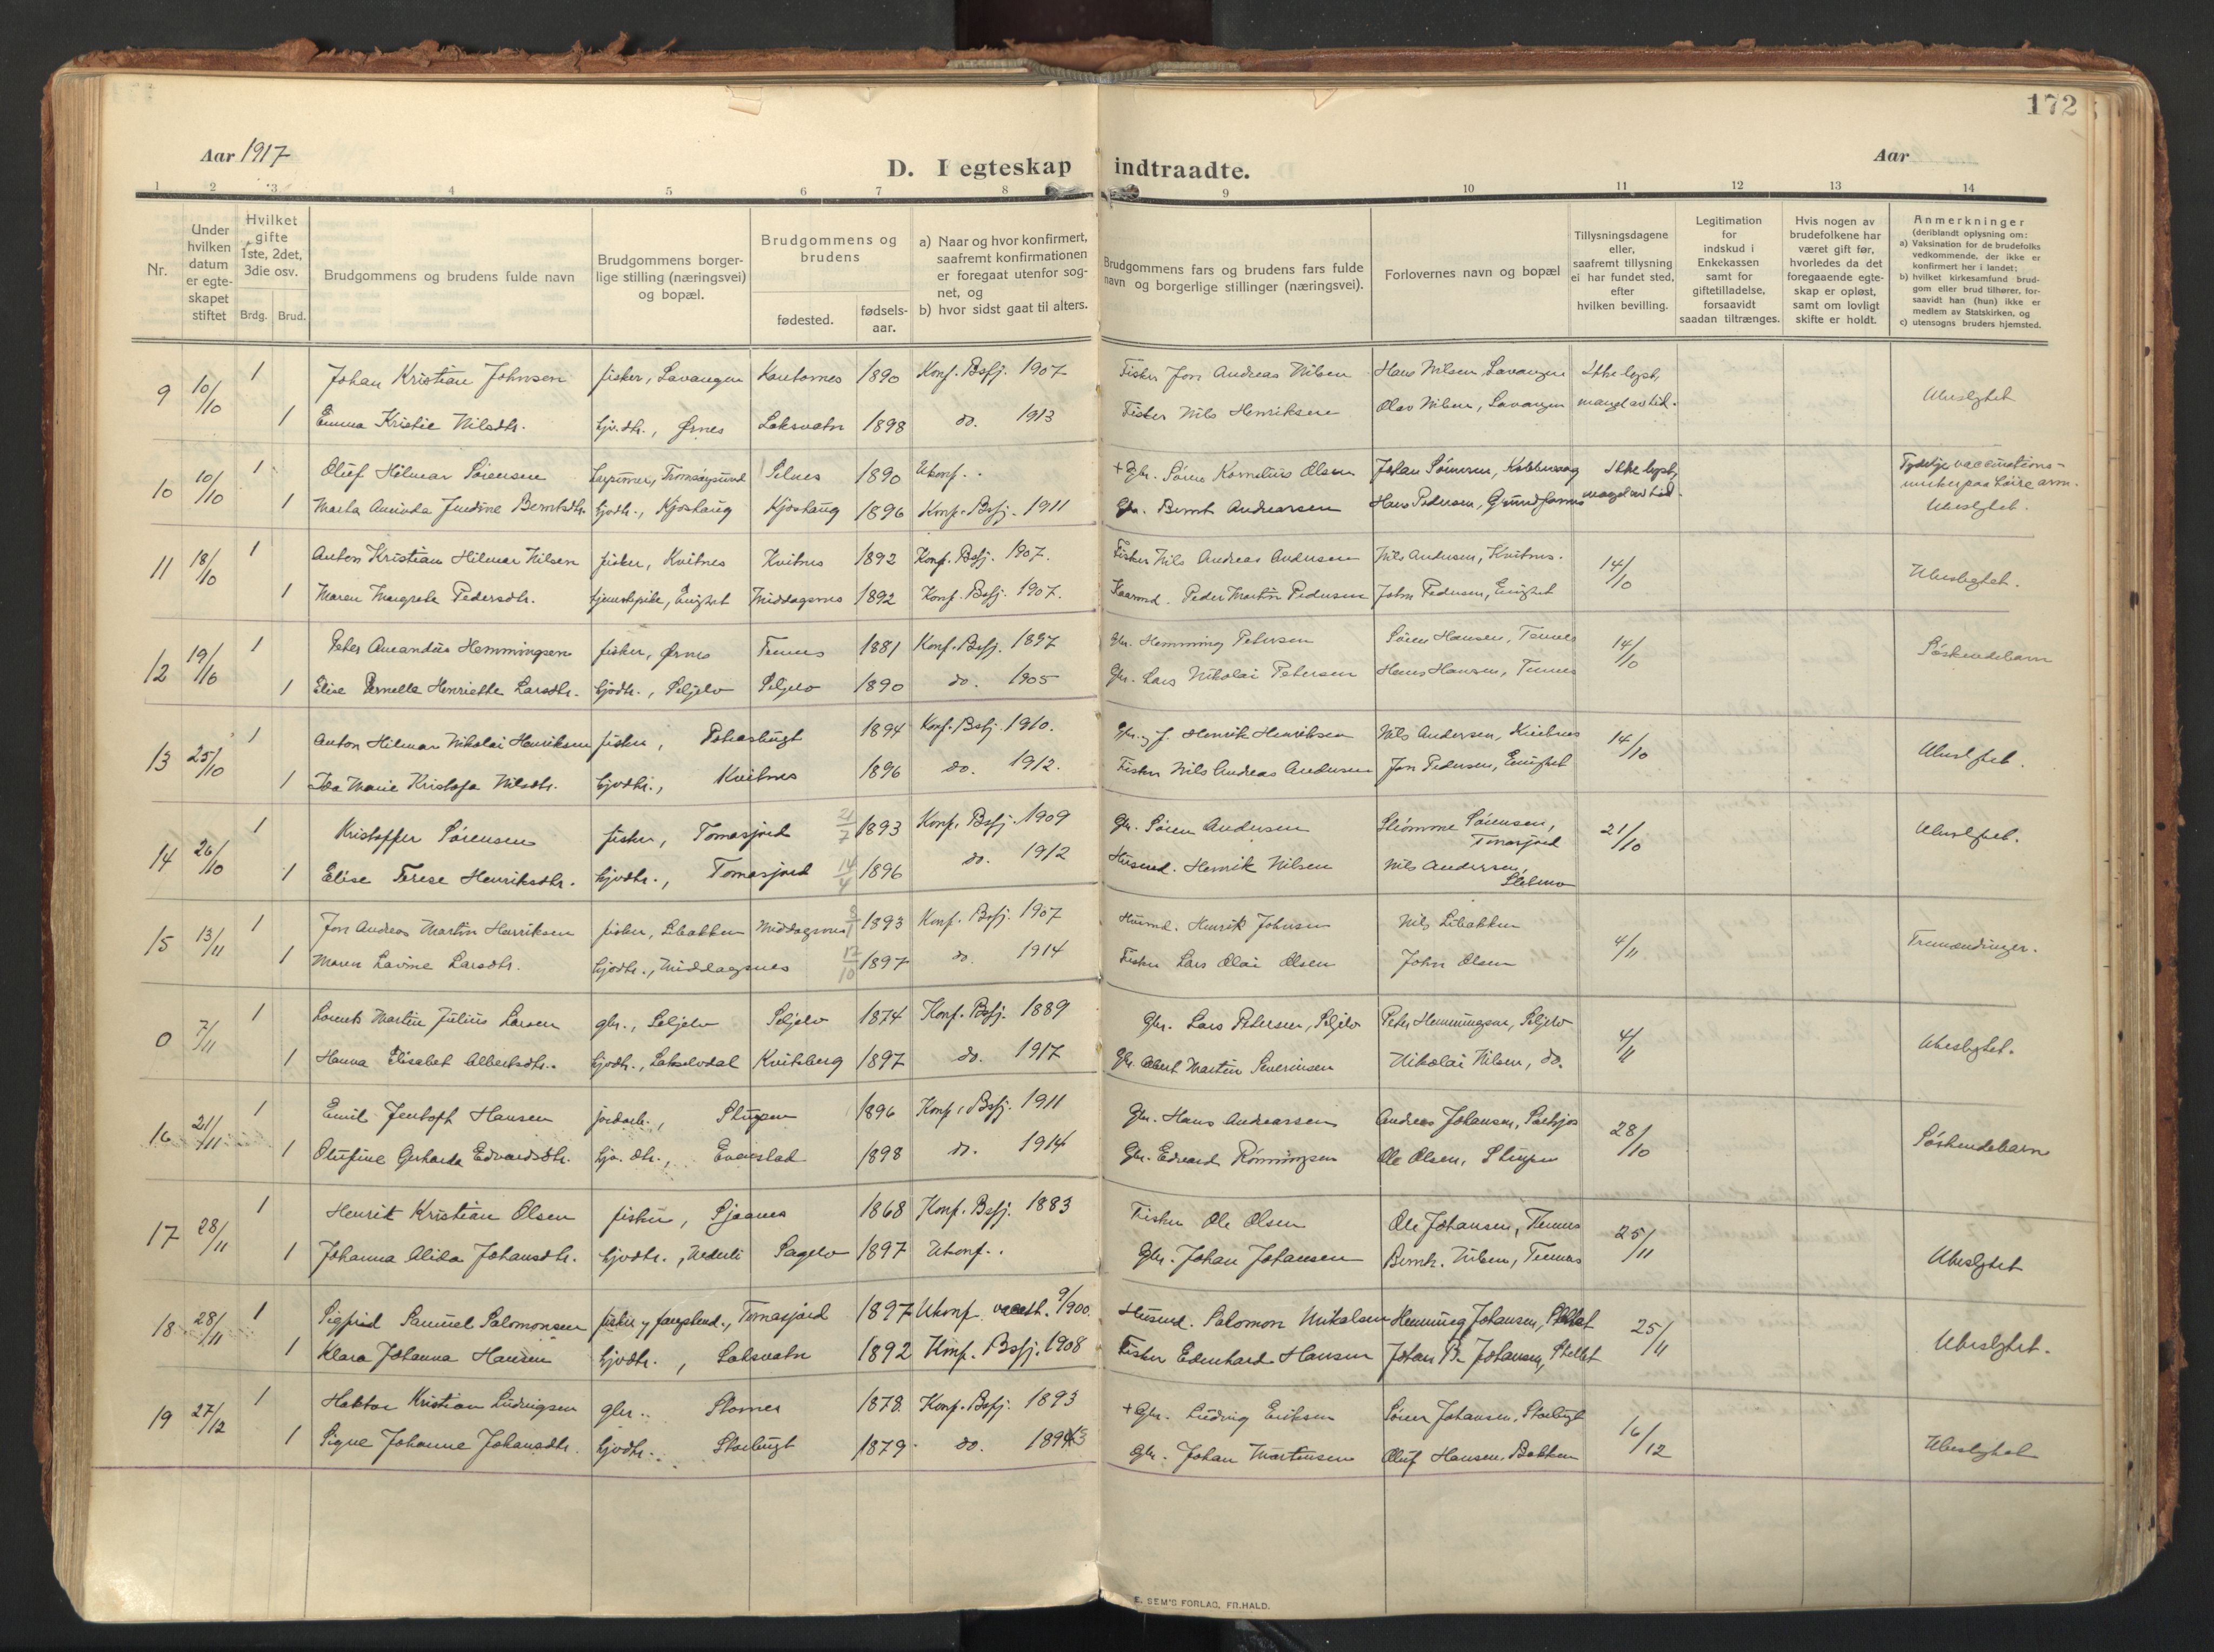 172
Aar 1917
D. I egteskap indtraadte.
Aar
1 2 3 4 5 6 7 8 9 10 11 12 13 14
Nr.
Under hvilken datum er egte-skapet stiftet
Hvilket gifte 1ste, 2det, 3die osv.
Brdg. Brud.
Brudgommens og brudens fulde navn
Brudgommens borger-lige stilling (næringsvei) og bopæl.
Brudgommens og brudens
fødested.
fødsels-aar.
a) Naar og hvor konfirmert, saafremt konfirmationen er foregaat utenfor sog-net, og
b) hvor sidst gaat til alters.
Brudgommens fars og brudens fars fulde navn og borgerlige stillinger (næringsvei).
Forlovernes navn og bopæl
Tillysningsdagene eller, saafremt tillysning ei har fundet sted, efter hvilken bevilling.
Legitimation for indskud i Enkekassen samt for giftetilladelse, forsaavidt saadan tiltrænges.
Hvis nogen av brudefolkene har været gift før, hvorledes da det foregaaende egte-skap er opløst, samt om lovligt skifte er holdt.
Anmerkninger
(deriblandt oplysning om:
a) Vaksination for de brudefolks vedkommende, der ikke er konfirmert her i landet;
b) hvilket kirkesamfund brud-gom eller brud tilhører, for-saavidt han (hun) ikke er medlem av Statskirken, og
c) utensogns bruders hjemsted.
9 10/10 1 Johan Kristian Johnsen fisker, Lavangen Kantornes 1890 Konf. Bsfj. 1907 Fisker Jon Andreas Nilsen Hans Nilsen Lavangen Ikke lyst, Ubeslegtet
1 Emma Kristie Nilsdtr. hjv.dtr., Ørnes Laksvatn 1898 do. 1913 Fisker Nils Henriksen Olav Nilsen, Lavangen mangel av tid.
10 10/10 1 Oluf Hilmar Sørensen Tromsøysund Selnes 1890 Ukonf. + Gbr. Søren Kornelius Olsen Johan Sørensen, Ikke lyst, Tydelige vaccinations-
1 Marta Amanda Jendine Berntsdtr. hjvdtr., Kjoshaug Kjoshaug 1896 Konf. Bsfj. 1911 Gbr. Bernt Andreassen Hans Pedersen, mangel av tid. merker paa høire arm.
Ubeslegtet.
11 18/10 1 Anton Kristian Hilmar Nilsen fisker, Kvitnes Kvitnes 1892 Konf. Bsfj. 1907. Fisker Nils Andreas Andersen Nils Andersen, Kvitnes. 14/10 Ubeslegtet.
1 Maren Margrete Pedersdtr. tjenestepike, Enighet Middagsnes 1892 Konf. Bsfj. 1907. Peder Martin Pedersen John Pedersen, Enighet
12 19/10 1 Peter Amandus Hemmingsen fisker, Ørnes Tennes 1881 Konf. Bsfj. 1897 Gbr. Hemming Petersen Søren Hansen, Tennes 14/10 Søskendebarn
1 Elise Pernella Henriette Larsdtr. hjvdtr., Seljelv Seljelv 1890 do. 1905 Gbr. Lars Nikolai Petersen Hans Hansen, Tennes
13 25/10 1 Anton Hilmar Nikolai Henriksen fisker, 1894 Konf. Bsfj. 1910. Gbr. og f. Henrik Henriksen Nils Andersen, Kvitnes 14/10 Ubeslegtet.
1 Ida Marie Kristofa Nilsdtr. hjvdtr., Kvitnes 1896 do. 1912. Fisker Nils Andreas Andersen Jon Pedersen, Enighet
14 26/10 1 Kristoffer Sørensen fisker, Tomasjord 21/7 1893 Konf. Bsfj. 1909 Gbr. Søren Andersen Sørensen, Tomasjord 21/10 Ubeslegtet.
1 Elise Terese Henriksdtr. hjvdtr., Tomasjord 14/4 1896 do. 1912 Husmd. Henrik Nilsen Nils Andersen
15 13/11 1 Jon Andreas Martin Henriksen fisker, Libakken Middagsnes 1893 Konf. Bsfj. 1907 Husmd. Henrik Johnsen Nils Libakken 4/11 Tremendinger.
1 Maren Lavine Larsdtr. hjvdtr., Middagsnes 17/10 1897 do. 1914 Fisker Lars Olai Olsen John Olsen
0 7/11 1 Lorents Martin Julius Larsen gbr., Seljelv Seljelv 1874 Konf. Bsfj. 1889 Gbr. Lars Petersen, Seljelv Peter Hemmingsen, Seljelv 4/11 Ubeslegtet.
1 Hanna Elisabet Albertsdtr. hjvdtr., Lakselvdal Kvitberg 1897 do. 1917 Gbr. Albert Martin Severinsen Nikolai Nilsen, do.
16 21/11 1 Emil Jentoft Hansen jordarb., Slupen 1896 Konf. Bsfj. 1911 Gbr. Hans Andreassen Andreas Johansen, 28/10 Søskendebarn
1 Olufine Gerharda Edvardsdtr. hjv.dtr., Evenstad 1898 do. 1914 Gbr. Edvard Rønningen Ole Olsen, Slupen
17 28/11 1 Henrik Kristian Olsen fisker, Sjaanes 1868 Konf. Bsfj. 1883 Fisker Ole Olsen Ole Johansen, Tennes 25/11 Ubeslegtet
1 Johanna Alida Johansdtr. hjvdtr., Sagelv 1897 Ukonf. Gbr. Johan Johansen Bernh. Nilsen, Tennes
18 28/11 1 Sigfred Samuel Salomonsen fisker og Tomasjord 1897 Ukonf. 9/1900. Husmd. Salomon Mikalsen Hemming Johansen, 25/11 Ubeslegtet.
1 Klara Johanna Hansen hjvdtr., Laksvatn 1892 Konf. Bsfj. 1908 Fisker Edenhard Hansen Johan B. Johansen,
19 27/12 1 Haktor Kristian Ludvigsen gbr. Stornes 1878 Konf. Bsfj. 1893 + Gbr. Ludvig Eriksen Søren Johansen, Storbugt 16/12 Ubeslegtet
1 Signe Johanne Johansdtr. hjvdtr. Storbugt 1879 do. Gbr. Johan Mortensen Oluf Hansen, Bakken
E. SEM'S FORLAG, FR.HALD.